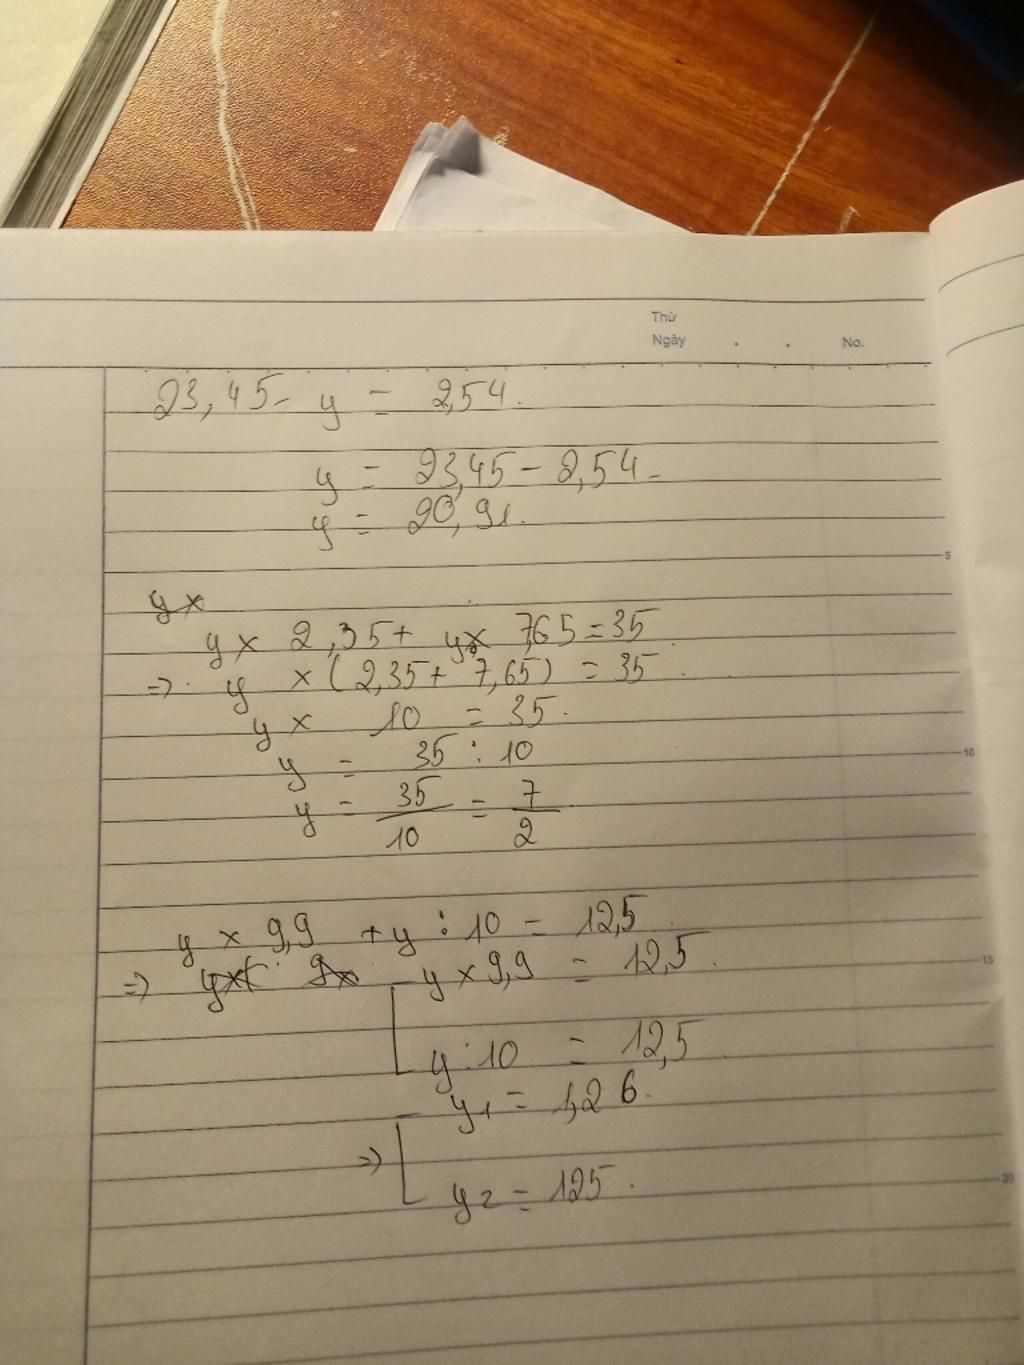 Thứ
Ngày . . No.
23,45 - y = 2,54.
y = 23,45 - 2,54.
y = 20,91.
5
y x
y x 2,35 + y x 7,65 = 35
=> y x (2,35 + 7,65) = 35.
y x 10 = 35.
10
y = 35 : 10
y = 35/10 = 7/2
y x 9,9 + y : 10 = 12,5
15
=> y x 9,9 = 12,5.
y : 10 = 12,5
y1 = 1,26.
=>
20
y2 = 125.